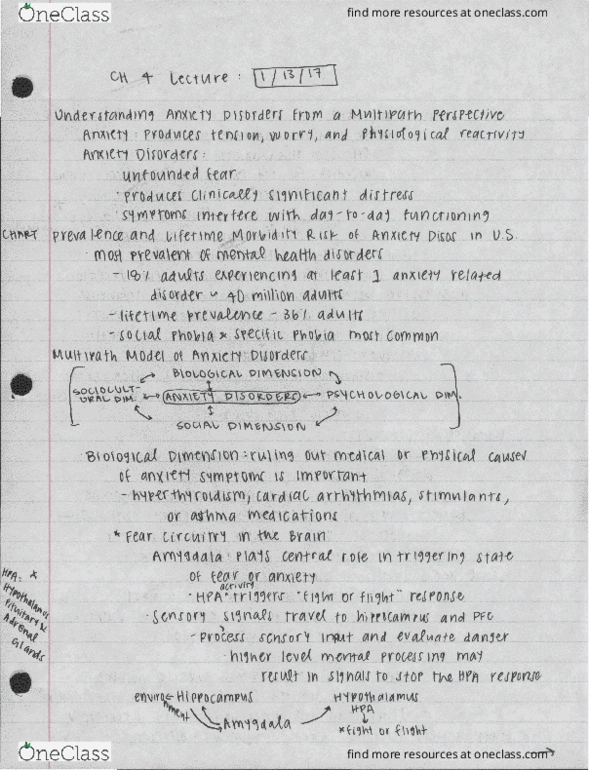 OneClass
find more resources at oneclass.com
CH 4 Lecture: 1/13/17
Understanding Anxiety Disorders from a Multipath Perspective
Anxiety: produces tension, worry, and physiological reactivity
Anxiety Disorders:
unfounded fear
· produces clinically significant distress
· symptoms interfere with day-to-day functioning
CHART Prevalence and Lifetime Morbidity Risk of Anxiety Disos in U.S.
· most prevalent of mental health disorders
- 18% adults experiencing at least 1 anxiety related
disorder ~ 40 million adults
- lifetime prevalence - 36% adults
- social phobia & specific phobia most common
Multipath Model of Anxiety Disorders
BIOLOGICAL DIMENSION
SOCIOCULT-
URAL DIM. ANXIETY DISORDERS PSYCHOLOGICAL DIM.
SOCIAL DIMENSION
Biological Dimension: ruling out medical or physical causes
of anxiety symptoms is important
- hyperthyroidism, cardiac arrhythmias, stimulants,
or asthma medications
* Fear Circuitry in the Brain
Amygdala: plays central role in triggering state
of fear or anxiety
activity
· HPA* triggers "fight or flight" response
· Sensory signals travel to hippocampus and PFC
- Process sensory input and evaluate danger
· higher level mental processing may
result in signals to stop the HPA response
HPA: *
Hypothalamus
Pituitary &
Adrenal
Glands
enviro Hippocampus
nment
Hypothalamus
HPA
Amygdala
*fight or flight
OneClass
find more resources at oneclass.com